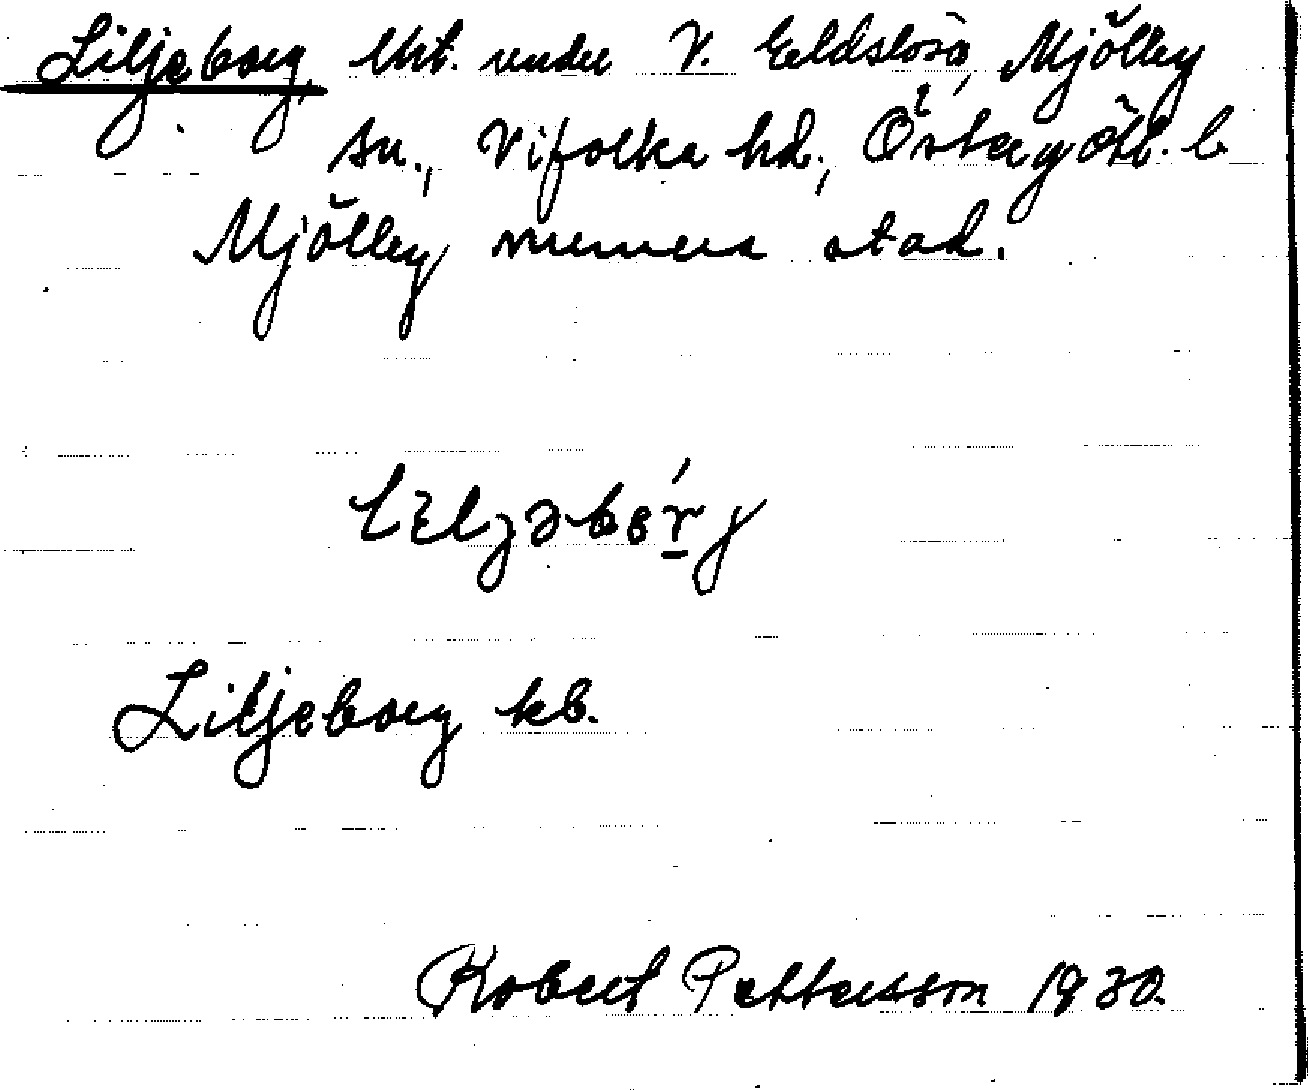 Liljeborg, lht. under V. Eldslösa, Mjölby
sn., Vifolka hd., Östergötl. l.
Mjölby numera stad.
Liljeborg kb.
Robert Pettersson 1930.